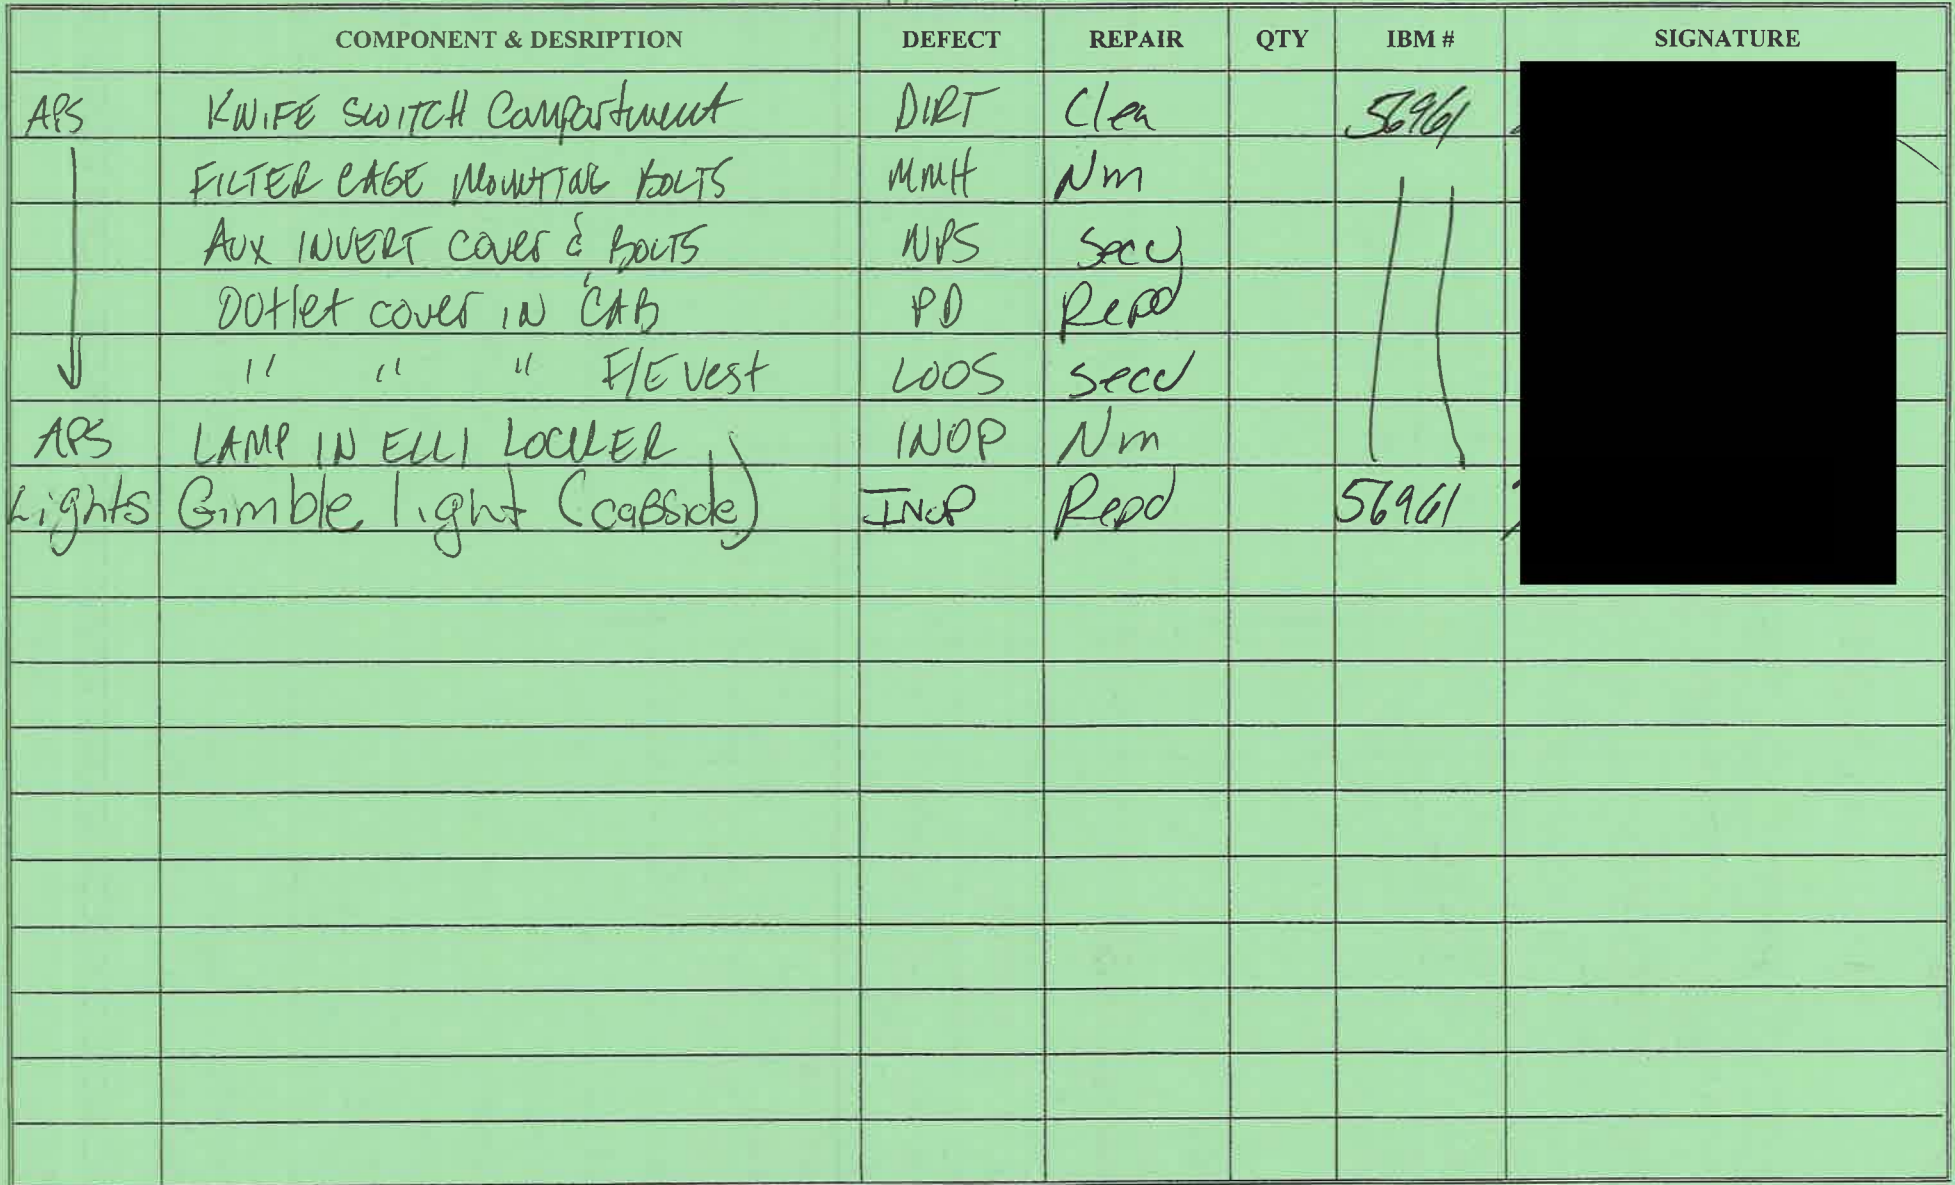 COMPONENT & DESRIPTION DEFECT REPAIR QTY IBM # SIGNATURE
APS KNIFE SWITCH Compartment DIRT Clea 56961
FILTER CAGE MOUNTING BOLTS MMH Nm
AUX INVERT cover & BOLTS NPS secu
Outlet cover IN CAB PD Repd
" " " F/E Vest LOOS secu
APS LAMP IN ELLI LOCKER INOP Nm
Lights Gimble light (caBside) INOP Repd 56961